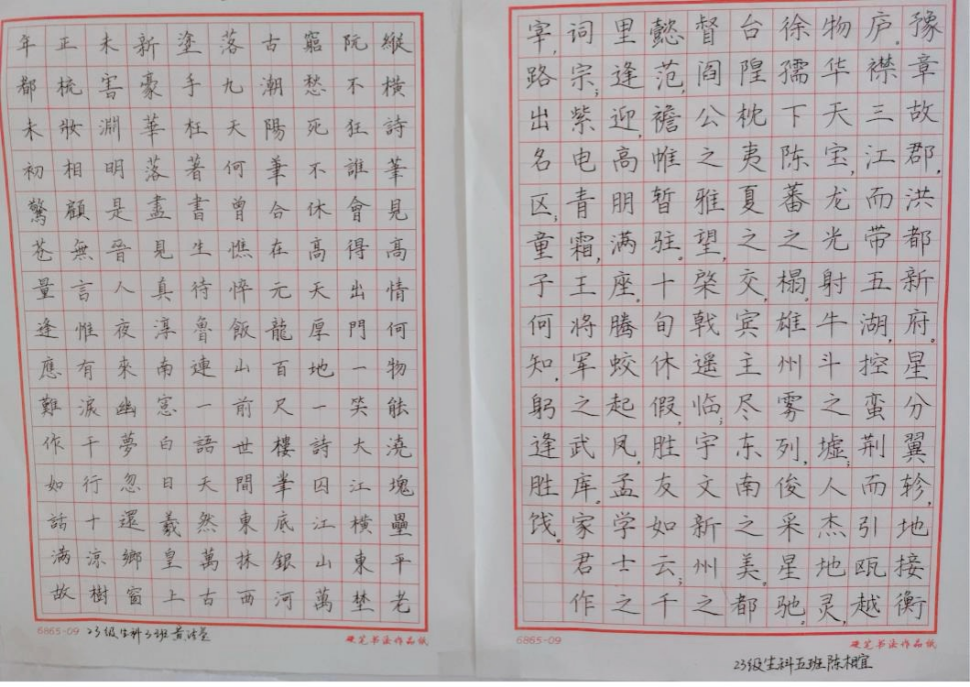 縱橫詩筆見高情何物能澆塊壘平老
阮不狂誰會得出門一笑大江橫東埜
窮愁死不休高天厚地一詩囚江山萬
古潮陽筆合在元龍百尺樓筆底銀河
落九天何曾憔悴飯山前世間東抹西
塗手枉著書生待魯連一語天然萬古
新豪華落盡見真淳南窓白日羲皇上
未害淵明是晉人夜來幽夢忽還鄉窗
正梳妝相顧無言惟有淚千行十涼樹
年都未初驚苍量逢應難作如話滿故
6865-09 23级生科3班黄 硬笔书法作品纸
豫章故郡，洪都新府。星分翼轸，地接衡
庐。襟三江而带五湖，控蛮荆而引瓯越
物华天宝，龙光射牛斗之墟；人杰地灵，
徐孺下陈蕃之榻。雄州雾列，俊采星驰。
台隍枕夷夏之交，宾主尽东南之美。都
督阎公之雅望，棨戟遥临；宇文新州之
懿范，襜帷暂驻。十旬休假，胜友如云；千
里逢迎，高朋满座。腾蛟起凤，孟学士之
词宗；紫电青霜，王将军之武库。家君作
宰，路出名区；童子何知，躬逢胜饯。
6865-09 硬笔书法作品纸
23级生科五班陈相宜